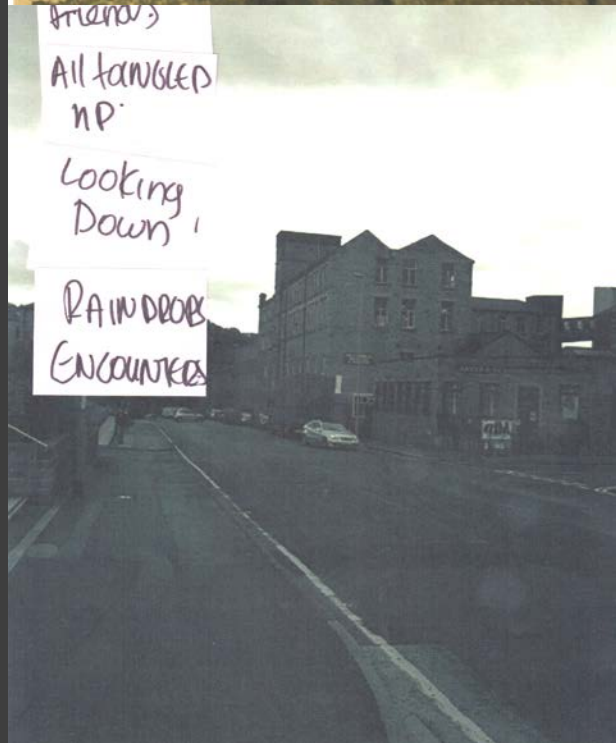 friends
All taNGLED
UP.
Looking
Down
RAINDROPS
ENCOUNTERS